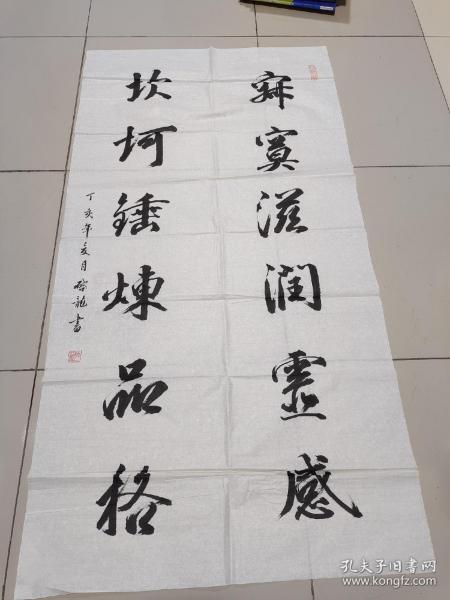 寂寞滋润靈感
坎坷錘煉品格
丁亥年夏月
書
孔夫子旧书网
www.kongfz.com